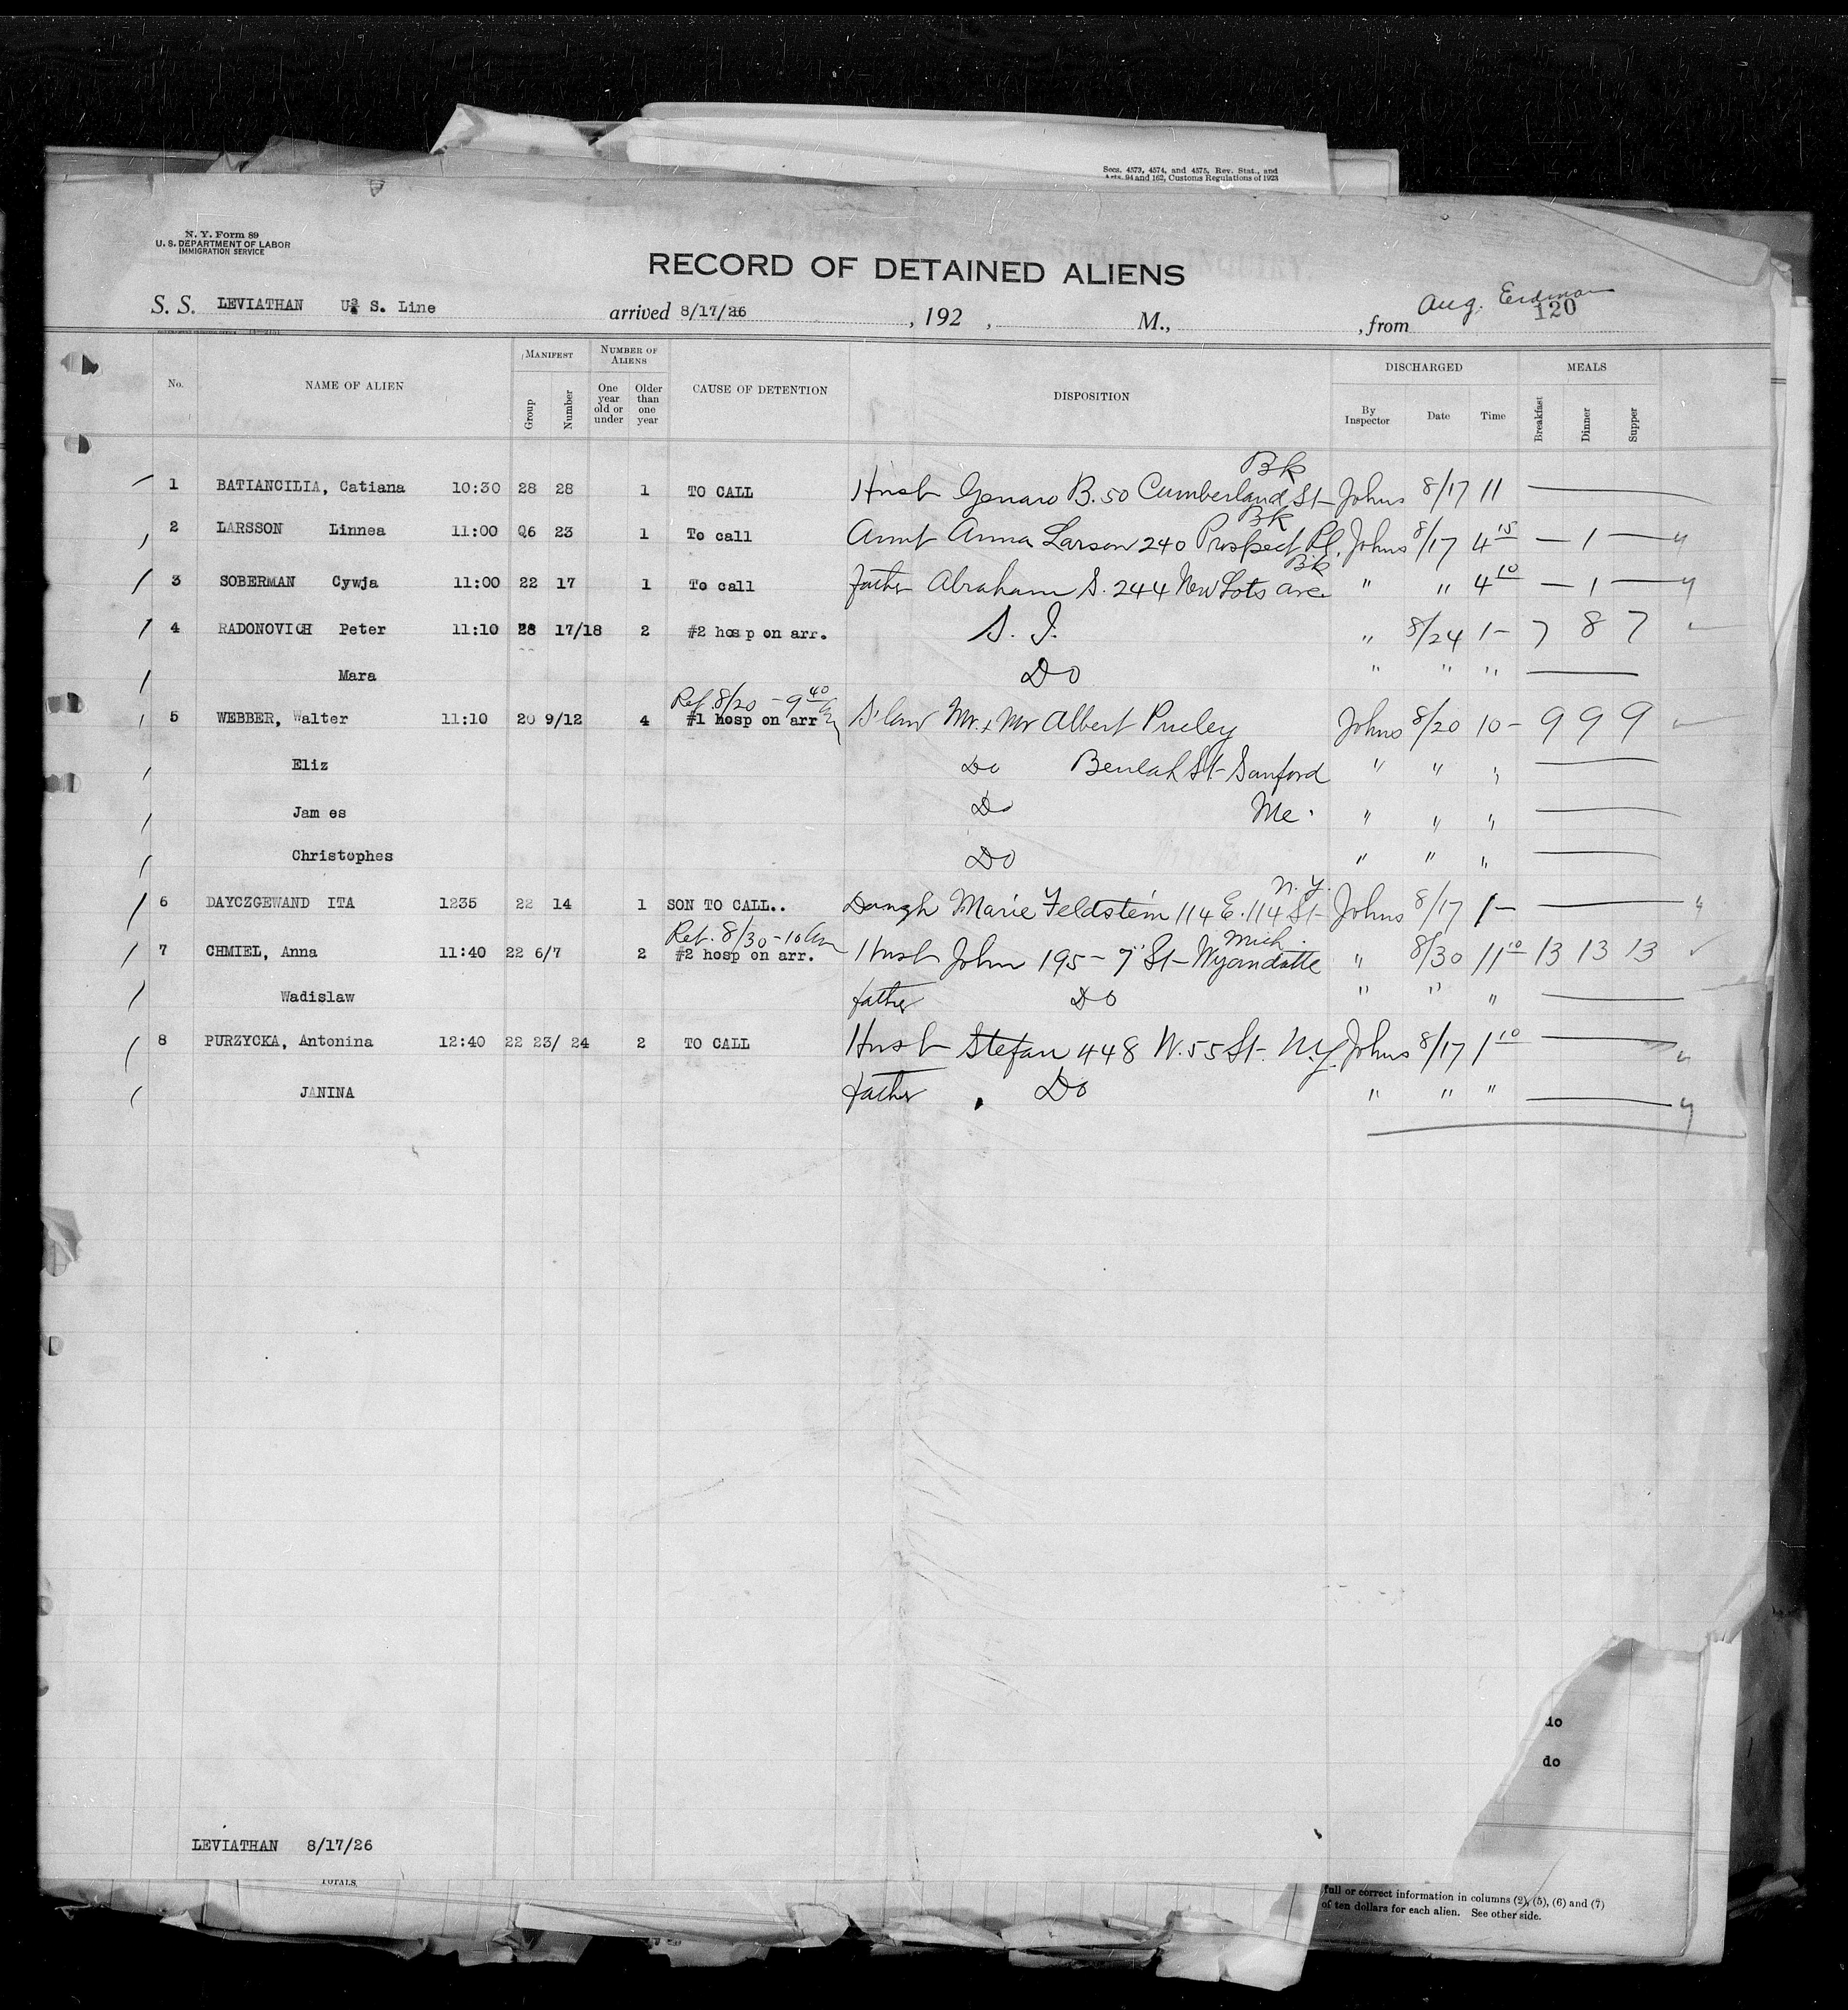 Secs. 4573, 4574, and 4575, Rev. Stat., and
Arts. 94 and 162, Customs Regulations of 1923
N. Y. Form 89
U. S. DEPARTMENT OF LABOR
IMMIGRATION SERVICE
RECORD OF DETAINED ALIENS
S. S. LEVIATHAN U. S. Line arrived 8/17/26, 192 , M., , from Aug. Erdman 120
No. NAME OF ALIEN MANIFEST Group Number NUMBER OF ALIENS One year old or under Older than one year CAUSE OF DETENTION DISPOSITION DISCHARGED By Inspector Date Time MEALS Breakfast Dinner Supper
Bk
1 BATIANCILIA, Catiana 10:30 28 28 1 TO CALL Husb Genaro B. 50 Cumberland St Johns 8/17 11
Bk
2 LARSSON Linnea 11:00 26 23 1 To call Aunt Anna Larson 240 Prospect Pl. Johns 8/17 4 15 — 1 —
Bk
3 SOBERMAN Cywja 11:00 22 17 1 To call father Abraham S. 244 New Lots Ave " " 4 10 — 1 —
4 RADONOVICH Peter 11:10 28 17/18 2 #2 hosp on arr. S. I. " 8/24 1- 7 8 7
Mara Do " " "
Ret. 8/20 - 9 40 am
5 WEBBER, Walter 11:10 20 9/12 4 #1 hosp on arr Mr. + Mr Albert Johns 8/20 10- 9 9 9
Eliz Do Beulah St Sanford " " "
Jam es Do Me. " " "
Christophes Do " " "
N.Y.
6 DAYCZGEWAND ITA 1235 22 14 1 SON TO CALL.. Daugh Marie Feldstein 114 E. 114 St Johns 8/17 1-
Ret. 8/30 - 10 am Mich.
7 CHMIEL, Anna 11:40 22 6/7 2 #2 hosp on arr. Husb John 195 - 7" St Wyandotte " 8/30 11 10 13 13 13
Wadislaw father Do " " "
8 PURZYCKA, Antonina 12:40 22 23/ 24 2 TO CALL Husb Stefan 448 W. 55 St. N.Y. Johns 8/17 1 10
JANINA father Do " " "
do
do
LEVIATHAN 8/17/26
TOTALS
full or correct information in columns (2), (5), (6) and (7)
of ten dollars for each alien. See other side.